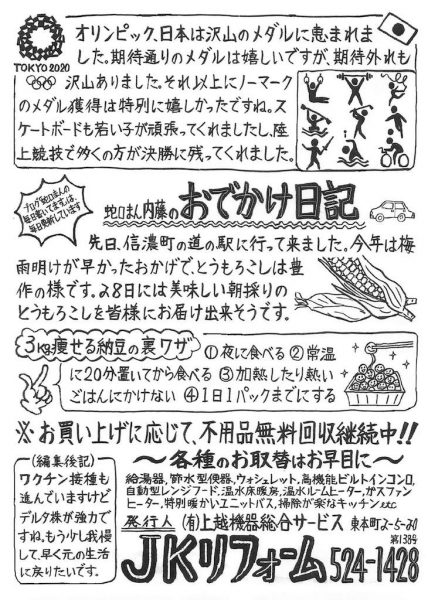 TOKYO 2020
オリンピック、日本は沢山のメダルに恵まれま
した。期待通りのメダルは嬉しいですが、期待外れも
沢山ありました。それ以上にノーマーク
のメダル獲得は特別に嬉しかったですね。ス
ケートボードも若い子が頑張ってくれましたし、陸
上競技で多くの方が決勝に残ってくれました。
ブログ蛇口まんの
毎日書いてますよ、は、
毎日更新しています
蛇口まん内藤のおでかけ日記
先日、信濃町の道の駅に行って来ました。今年は梅
雨明けが早かったおかげで、とうもろこしは豊
作の様です。28日には美味しい朝採りの
とうもろこしを皆様にお届け出来そうです。
3kg痩せる納豆の裏ワザ
①夜に食べる ②常温
に20分置いてから食べる ③加熱したり熱い
ごはんにかけない ④1日1パックまでにする
※お買い上げに応じて、不用品無料回収継続中!!
(編集後記)
ワクチン接種も
進んでいますけど
デルタ株が強力で
すね。もう少し我慢
して、早く元の生活
に戻りたいです。
〜各種のお取替はお早目に〜
給湯器、節水型便器、ウォシュレット、高機能ビルトインコンロ、
自動型レンジフード、温水床暖房、温水ルームヒーター、ガスファン
ヒーター、特別暖かいユニットバス、掃除が楽なキッチンetc
発行人 (有)上越機器総合サービス 東本町2-5-20
第138号
JKリフォーム 524-1428